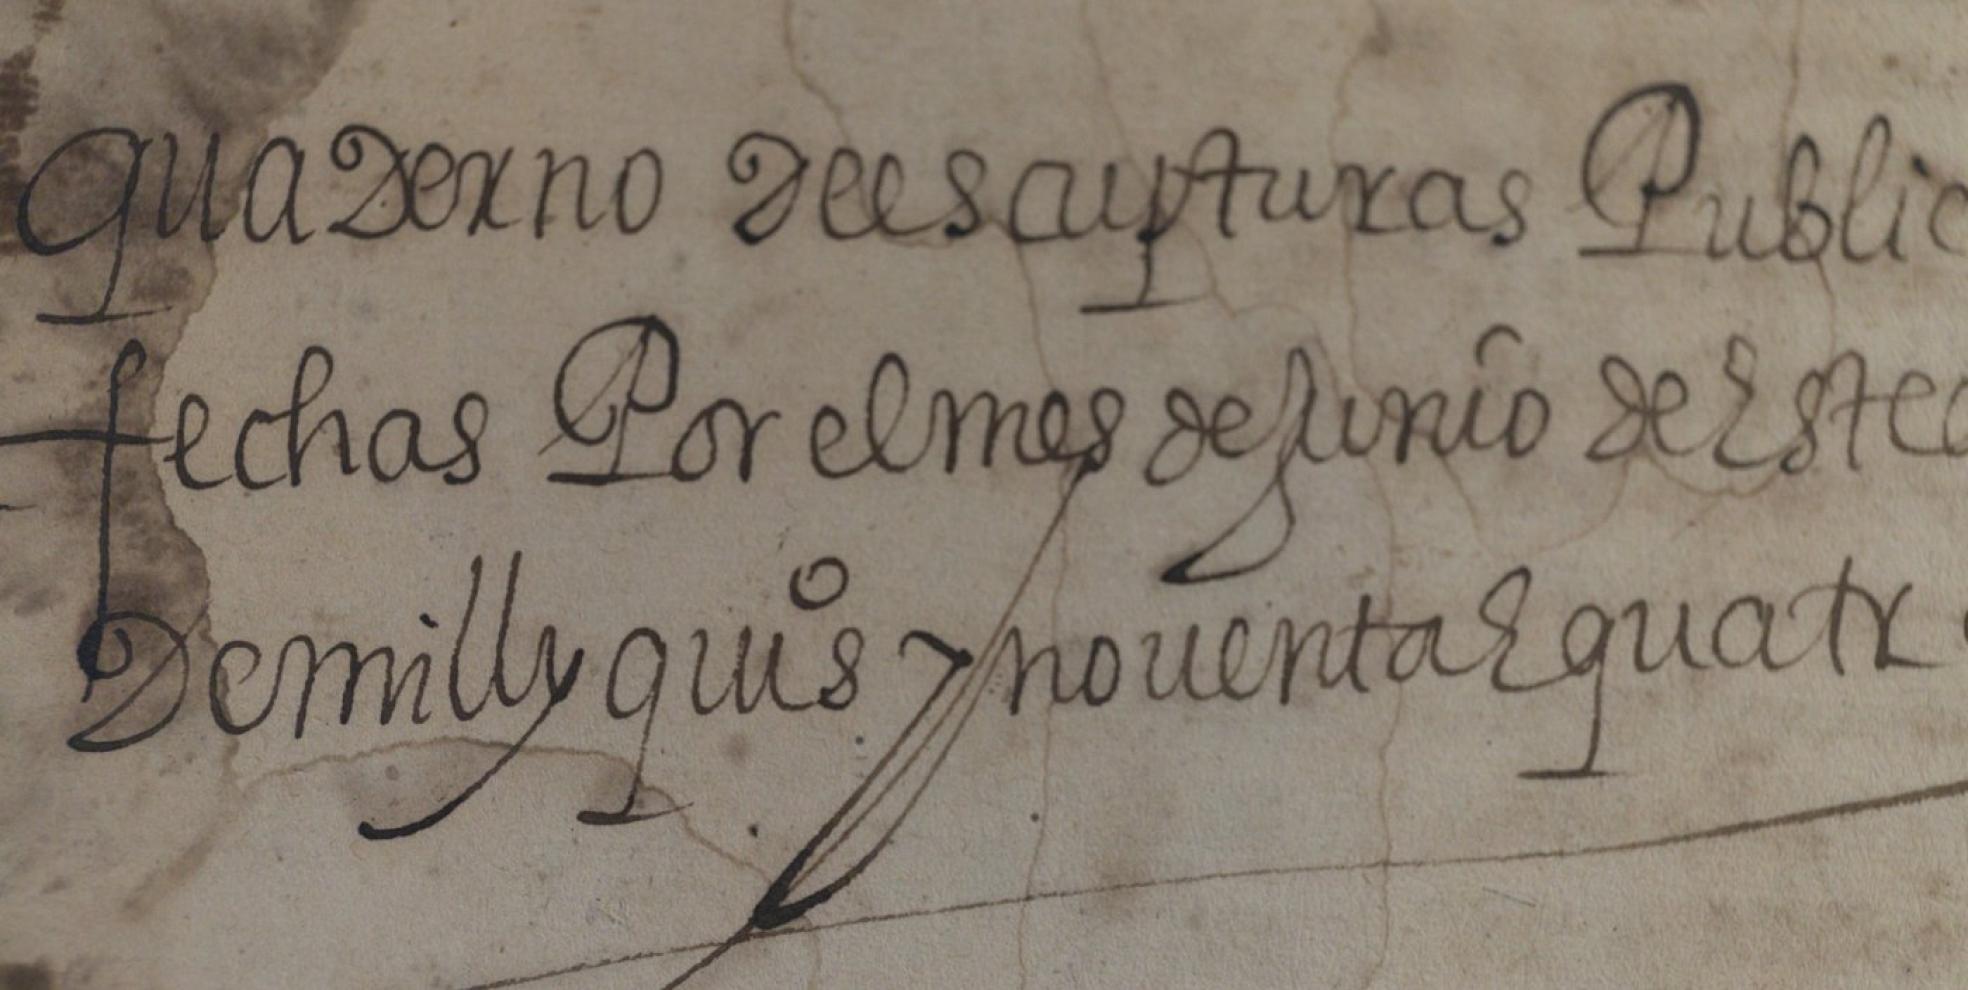 quaderno de escripturas Public
fechas Por el mes de junio de este
de mill y quis y noventa E quatro